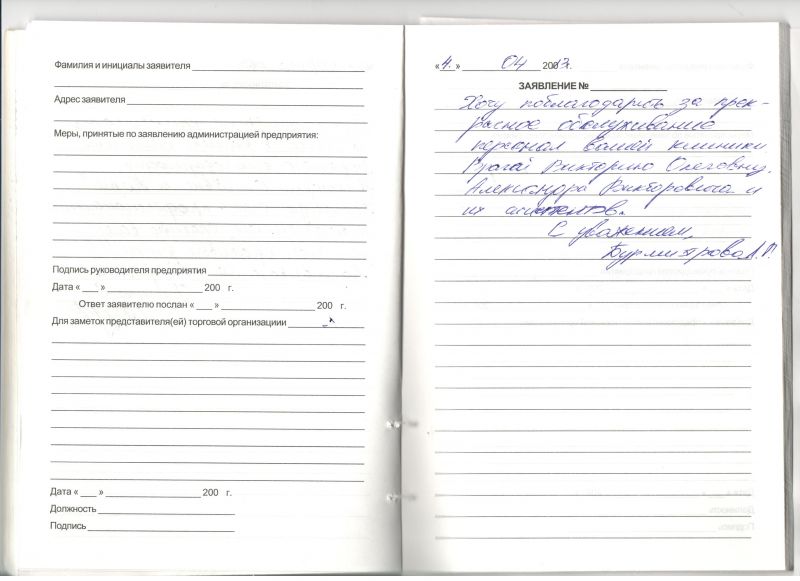 Фамилия и инициалы заявителя
Адрес заявителя
Меры, принятые по заявлению администрацией предприятия:
Подпись руководителя предприятия
Дата « ___ » ___ 200 г.
Ответ заявителю послан « ___ » ___ 200 г.
Для заметок представителя(ей) торговой организациии
Дата « ___ » ___ 200 г.
Должность
Подпись
«4.» 04 2013г.
ЗАЯВЛЕНИЕ №
Хочу поблагодарить за прек-
расное обслуживание
персонал вашей клиники
Врачей Викторию Олеговну,
Александра Викторовича и
их асистентов.
С уважением,
Бурмитрова А.